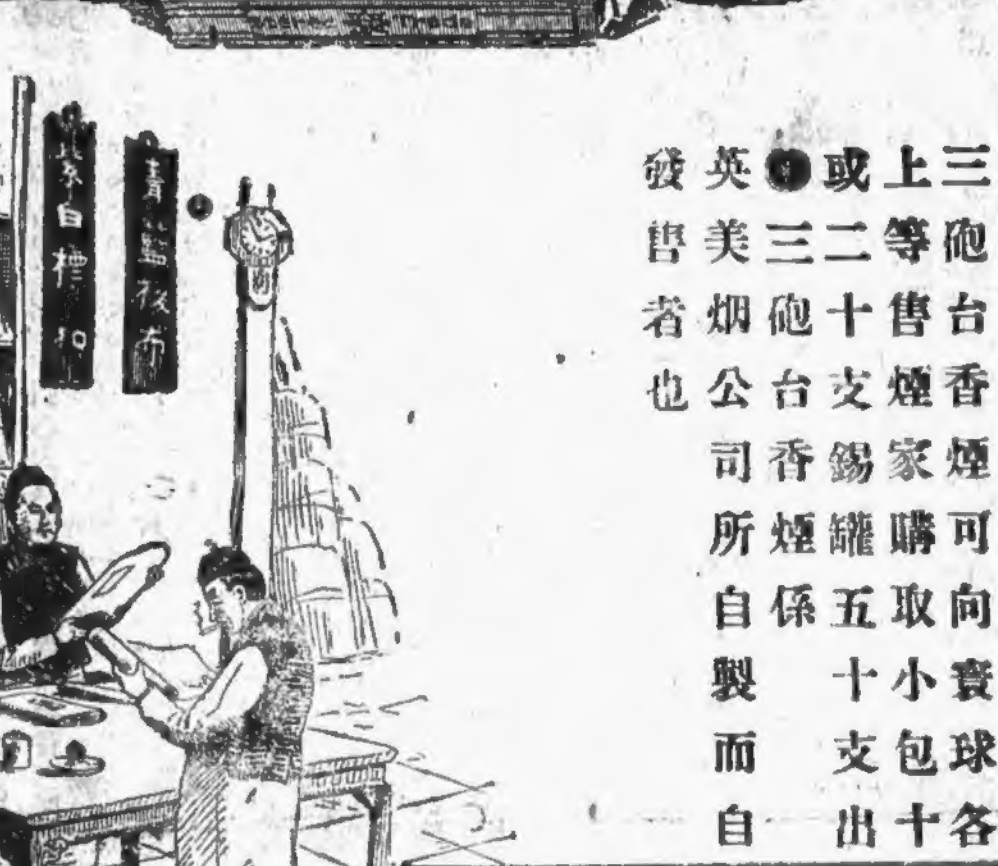 三砲台香煙可向寰球各
上等售煙家購取小包十
或二十支錫罐五十支出
三砲台香煙係
英美烟公司所自製而自
發售者也